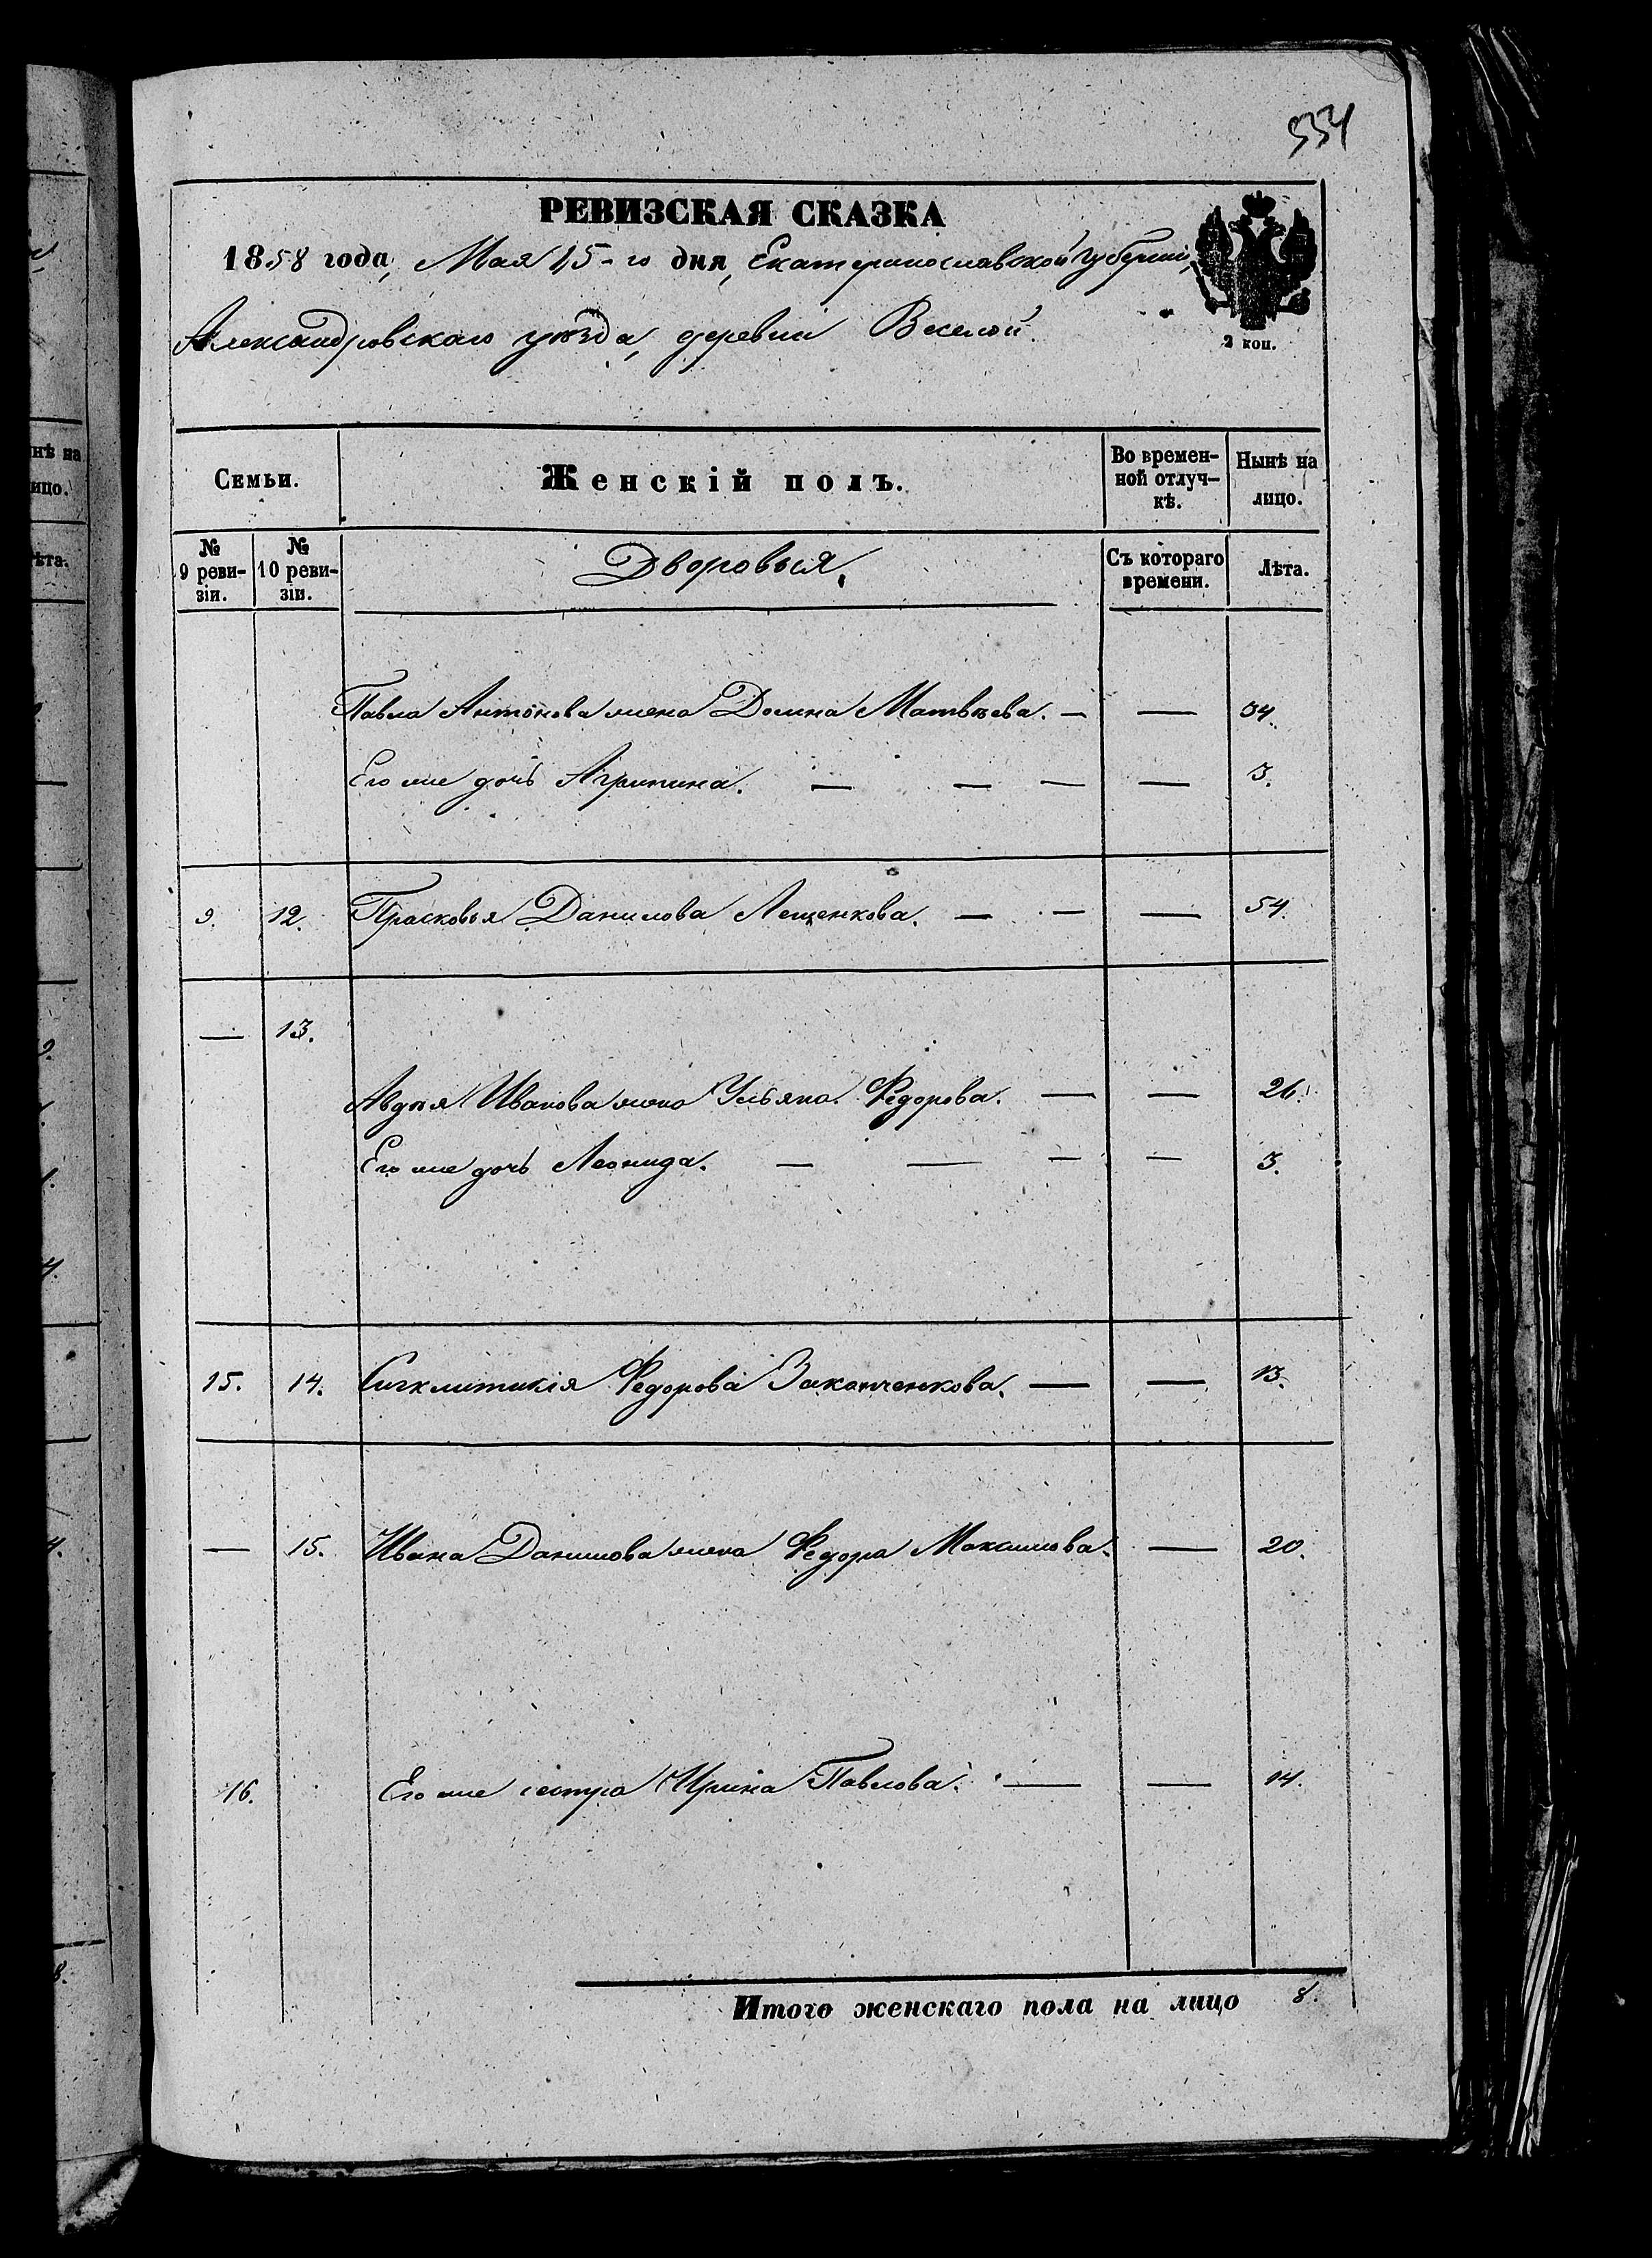 534
РЕВИЗСКАЯ СКАЗКА
1858 года, Мая 15-го дня, Екатеринославской губерніи,
Александровскаго уѣзда, деревни Веселой.
2 коп.
Семьи.
Женскій полъ.
Во времен-
ной отлуч-
кѣ.
Нынѣ на
лицо.
№
9 реви-
зіи.
№
10 реви-
зіи.
Дворовыя.
Съ котораго
времени.
Лѣта.
Павла Антонова жена Домна Матвѣева. — — 34.
Его же дочь Агрипина. — — — — 3.
9. 12. Прасковья Данилова Лещенкова. — — — 54.
— 13.
Авдѣя Иванова жена Ульяна Федорова. — — 26.
Его же дочь Леонида. — — — — 3.
15. 14. Сигклитикія Федорова Закотченкова. — — 13.
— 15. Ивана Данилова жена Федора Максимова. — 20.
16. Его же сестра Ирина Павлова. — — 14.
Итого женскаго пола на лицо 8.
нѣ на
ицо.
ѣта.